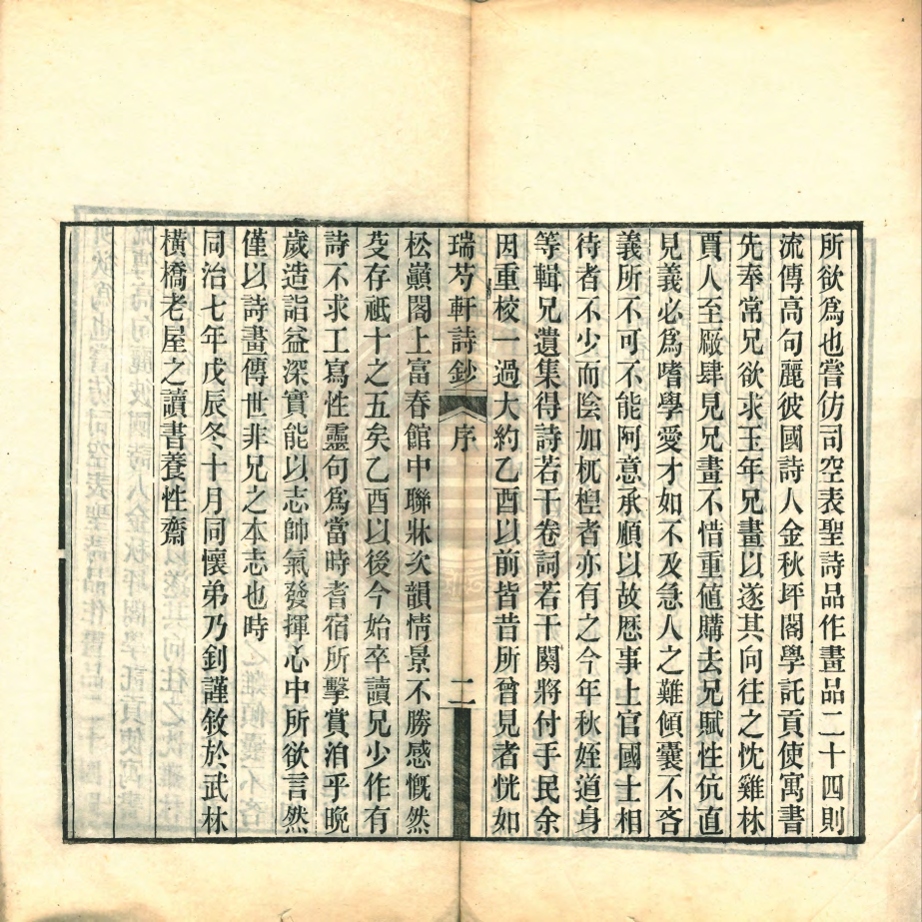 所欲爲也嘗仿司空表聖詩品作畫品二十四則
流傳高句麗彼國詩人金秋坪閣學託貢使寓書
先奉常兄欲求玉年兄畫以遂其向往之忱雞林
賈人至厰肆見兄畫不惜重値購去兄賦性伉直
見義必爲嗜學愛才如不及急人之難傾囊不吝
義所不可不能阿意承順以故歷事上官國士相
待者不少而陰加杌楻者亦有之今年秋姪道身
等輯兄遺集得詩若干卷詞若干闋將付手民余
因重校一過大約乙酉以前皆昔所曾見者恍如
瑞芍軒詩鈔 序 二
松巔閣上富春館中聯牀次韻情景不勝感慨然
芟存祗十之五矣乙酉以後今始卒讀兄少作有
詩不求工寫性靈句爲當時耆宿所擊賞洎乎晚
歲造詣益深實能以志帥氣發揮心中所欲言然
僅以詩畫傳世非兄之本志也時
同治七年戊辰冬十月同懷弟乃釗謹敘於武林
橫橋老屋之讀書養性齋